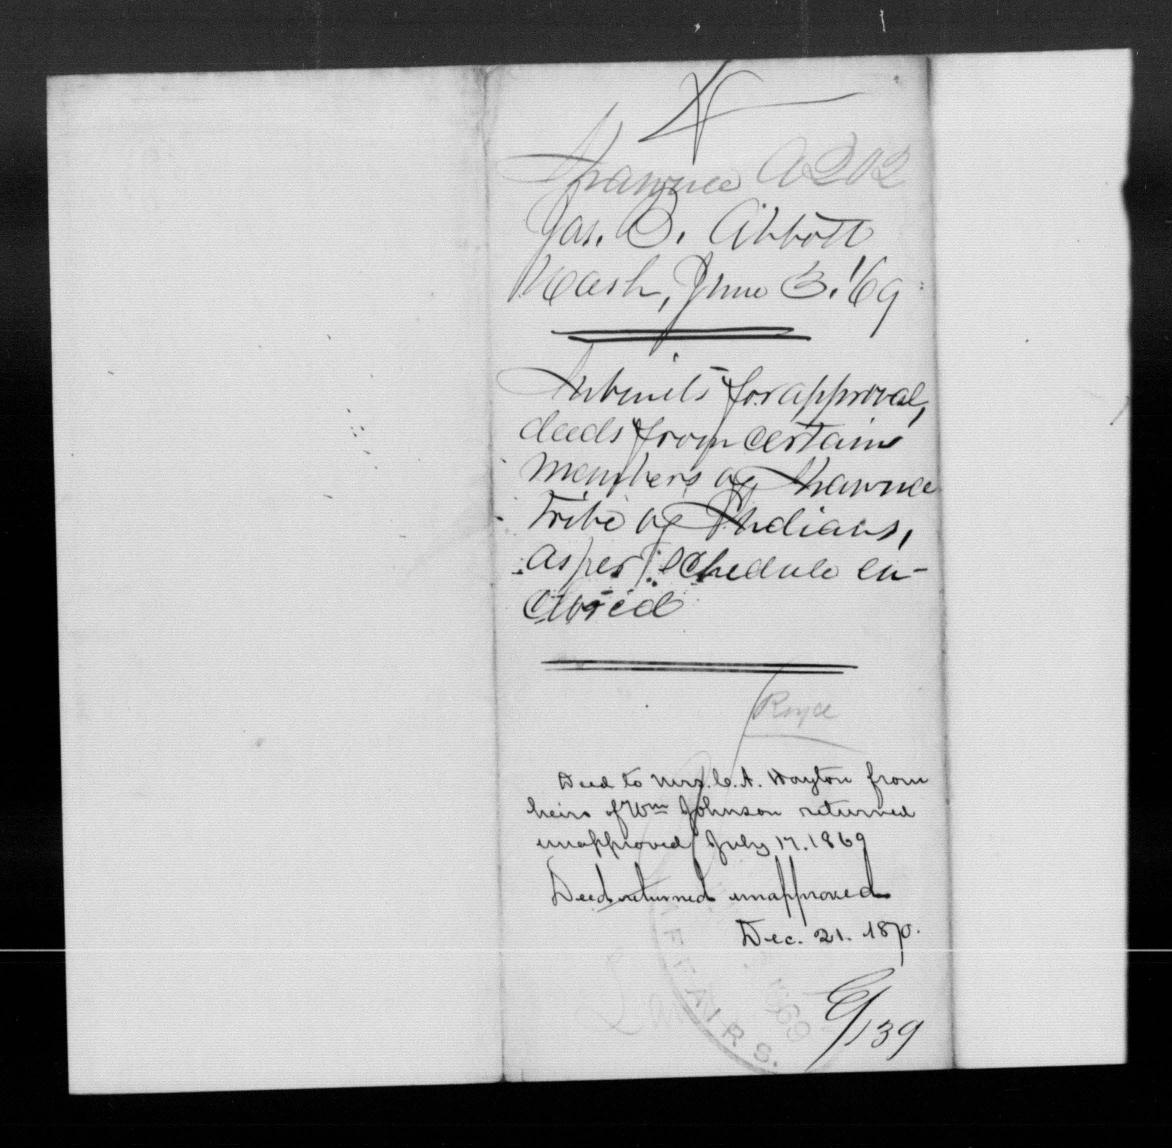 Shawnee A202
Jas. B. Abbott
Wash, June 3. '69
Submits for approval,
deeds from certain
members of Shawnee
tribe of Indians,
as per schedule en-
closed
Royce
Deed to Mrs. C. A. Hayton from
heirs of Wm Johnson returned
unapproved July 17. 1869
Deed returned unapproved
Dec. 21. 1870.
1869
AFFAIRS.
139